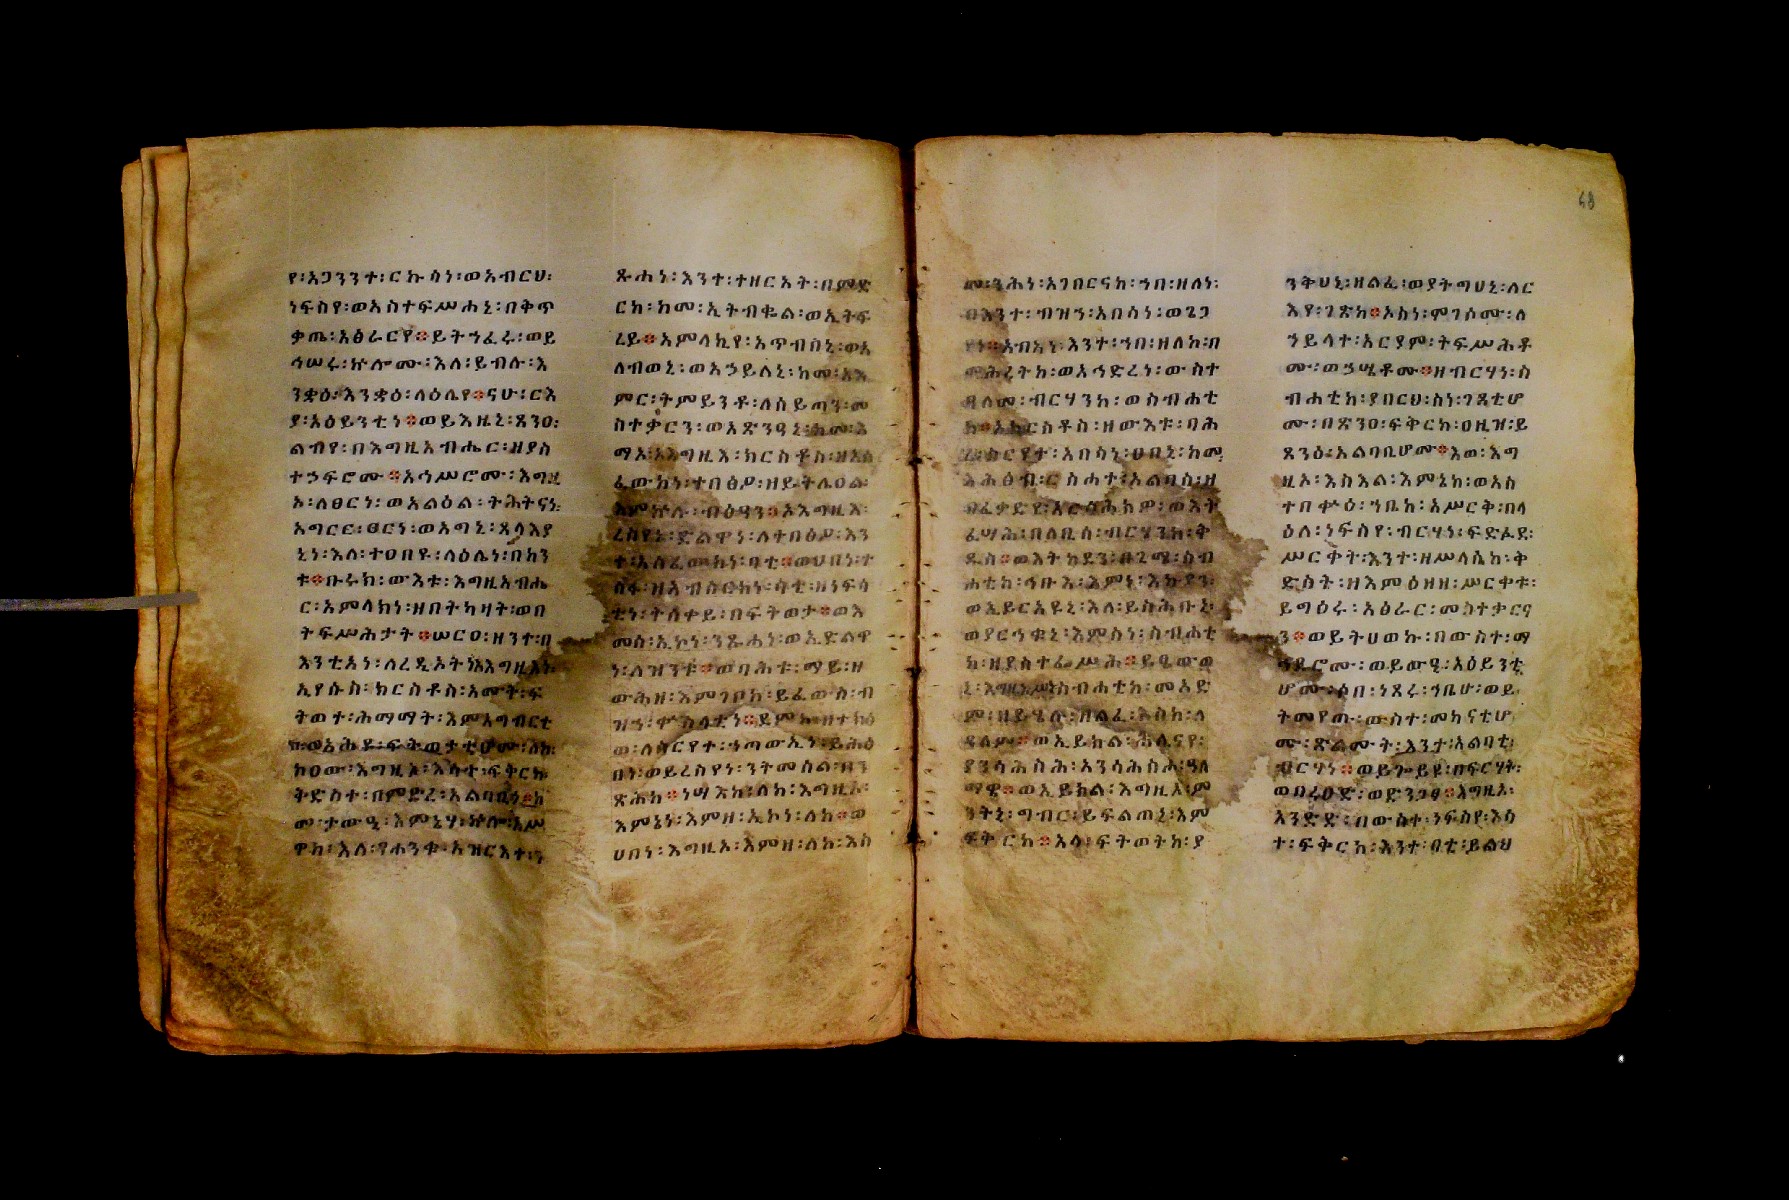 የ፡አጋንንተ፡ርኩሳነ፡ወአብርህ፡
ነፍስየ፡ወአስተፍሥሐኒ፡በቅጥ
ቃጤ፡አፅራርየ፨ይትኀፈሩ፡ወይ
ኀሠሩ፡ኵሎሙ፡እለ፡ይብሉ፡እ
ንቋዕ፡እንቋዕ፡ላዕሌየ፨ናሁ፡ርእ
ያ፡አዕይንቲነ፨ወይእዜኒ፡ጸንዐ፡
ልብየ፡በእግዚአብሔር፡ዘያስ
ተኃፍሮሙ፨አኀሥሮሙ፡እግዚ
ኦ፡ለፀርነ፡ወአልዕል፡ትሕትናነ፡
አግርር፡ፀርነ፡ወአግኒ፡ጸላእያ
ኒነ፡እለ፡ተዐበዩ፡ላዕሌነ፡በከን
ቱ፨ቡሩክ፡ውእቱ፡እግዚአብሔ
ር፡አምላክነ፡ዘበትካዛት፡ወበ
ትፍሥሕታት፨ሠርዐ፡ዘንተ፡በ
እንቲአነ፡ለረዲኦትነ፡እግዚእነ፡
ኢየሱስ፡ክርስቶስ፡አሙት፡ፍ
ትወተ፡ሕማማት፡እምአግብርቲ
ከ፡ወአሕዩ፡ፍትወታቲሆሙ፡
ከዐው፡እግዚኦ፡እሳተ፡ፍቅርከ፡
ትድስተ፡በምድረ፡አልባቢነ፨ከ
መ፡ታውዒ፡እምኔሃ፡ኵሎ፡አሥ
ዋከ፡እለ፡የሐንቁ፡አዝርእተ፡ን
ጹሐነ፡እንተ፡ተዘርአት፡በምድ
ርከ፡ከመ፡ኢትብቈል፡ወኢትፍ
ረይ፨አምላኪየ፡አጥብበኒ፡ወአ
ለብወኒ፡ወአኃይለኒ፡ከመ፡አእ
ምር፡ትምይንቶ፡ለሰይጣን፡መ
ስተቃርን፡ወአጽንዓኒ፡ከመ፡እ
ማእ፡እግዚእ፡ክርስቶስ፡
ፈውከነ፡ተበፅዖ፡ዘይትሌዐል፡
እምኵሉ፡ብዕዓን፨እግዚእ፡
ረስየነ፡ድልዋነ፡ለተበፅዖ፡እን
ተ፡አሰፈውከነ፡ባቲ፨ወሀበነ፡ተ
ስፋ፡
ቲነ፡ትሰቀይ፡በፍትወታ፨ወእ
መሰ፡ኢኮነ፡ንጹሐነ፡ወኢድልዋ
ነ፡ለዝንቱ፨ወባሕቱ፡ማይ፡ዘ
ውሕዘ፡እምገቦከ፡ይፈውስ፡ብ
ዝኀ፡ቍስላቲነ፨ደምከ፡ዘተክዕ
ወ፡ለስርየተ፡ኀጣውኢነ፡ይሕፅ
በነ፡ወይረስየነ፡ንትመሰል፡በን
ጽሕከ፨ነሣእከ፡ለከ፡እግዚኦ፡
እምኔነ፡እምዘ፡ኢኮነ፡ለከ፨ወ
ሀበነ፡እግዚኦ፡እምዘ፡ለከ፡እስ
መ፡ንሕነ፡አገበርናከ፡ኀበ፡ዘለነ፡
በእንተ፡ብዝኀ፡አበሳነ፡ወጌጋ
የነ፨አብአነ፡እንተ፡ኀበ፡ዘለከ፡በ
ምሕረትከ፡ወአኅድረነ፡ውስተ
ዓለመ፡ብርሃንከ፡ወስብሐቲ
ከ፨አክርስቶስ፡ዘውእቱ፡ባሕ
ረ፡ስርየተ፡አበሳነ፡ሀበኒ፡ከመ፡
እሕፅብ፡ርስሐተ፡አልባስ፡ዘ
ፈሣሕ፡በለቢሰ፡ብርሃንከ፡ቅ
ዱስ፨ወእትከደን፡በጊሜ፡ስብ
ሐቲከ፡ኅቡእ፡እምነ፡እኩያን፡
ወኢይርአዩኒ፡እለ፡ይስሕቡኒ፡
ወያርኀቁኒ፡እምስነ፡ስብሐቲ
ከ፡ዘያስተፌሥሕ፨ይዒውወ
ም፡ዘይሄሉ፡ዘልፈ፡እስከ፡ለ
ዓለም፨ወኢይክል፡ሕሊናየ፡
ያንሳሕስሕ፡አንሳሕስሖ፡ዓለ
ማዊ፨ወኢይክል፡እግዚእ፡ም
ንትኒ፡ግብር፡ይፍልጠኒ፡እም
ፍቅርከ፨አላ፡ፍትወትከ፡ያ
ንቅሀኒ፡ዘልፈ፡ወያትግህኒ፡ለር
እየ፡ገጽከ፨አስነ፡ምገሶሙ፡ለ
ኃይላተ፡አርያም፡ትፍሥሕቶ
ሙ፡ወኃሤቶሙ፨ዘብርሃነ፡ስ
ብሐቲከ፡ያበርህ፡ስነ፡ገጸቲሆ
ሙ፡በጽንዐ፡ፍቅርከ፡ዐዚዝ፡ይ
ጸንዕ፡አልባቢሆሙ፨እወ፡እግ
ዚኦ፡እስእል፡እምኔከ፡ወአስ
ተበቍዕ፡ኀቤከ፡አሥርቅ፡በላ
ዕለ፡ነፍስየ፡ብርሃነ፡ፍድፉደ፡
ሥርቀት፡እንተ፡ዘሥላሴከ፡ቅ
ድስት፡ዘእምዕዘዘ፡ሥርቀቱ፡
ይግዕሩ፡አፅራር፡መስተቃርና
ን፨ወይትሀወኩ፡በውስተ፡ማ
ኅደሮሙ፡ወይውዒ፡አዕይንቲ
ሆሙ፡ሶበ፡ነጸሩ፡ኀቤሁ፡ወይ
ትመየጡ፡ውስተ፡መከናቲሆ
ሙ፡ጽልሙት፡እንተ፡አልባቲ፡
ብርሃነ፨ወይጐይዩ፡በፍርሃት፡
ወበረዐድ፡ወድንጋፄ፨እግዚእ፡
አንድድ፡በውስተ፡ነፍስየ፡እሳ
ተ፡ፍቅርከ፡እንተ፡ባቲ፡ይልህ